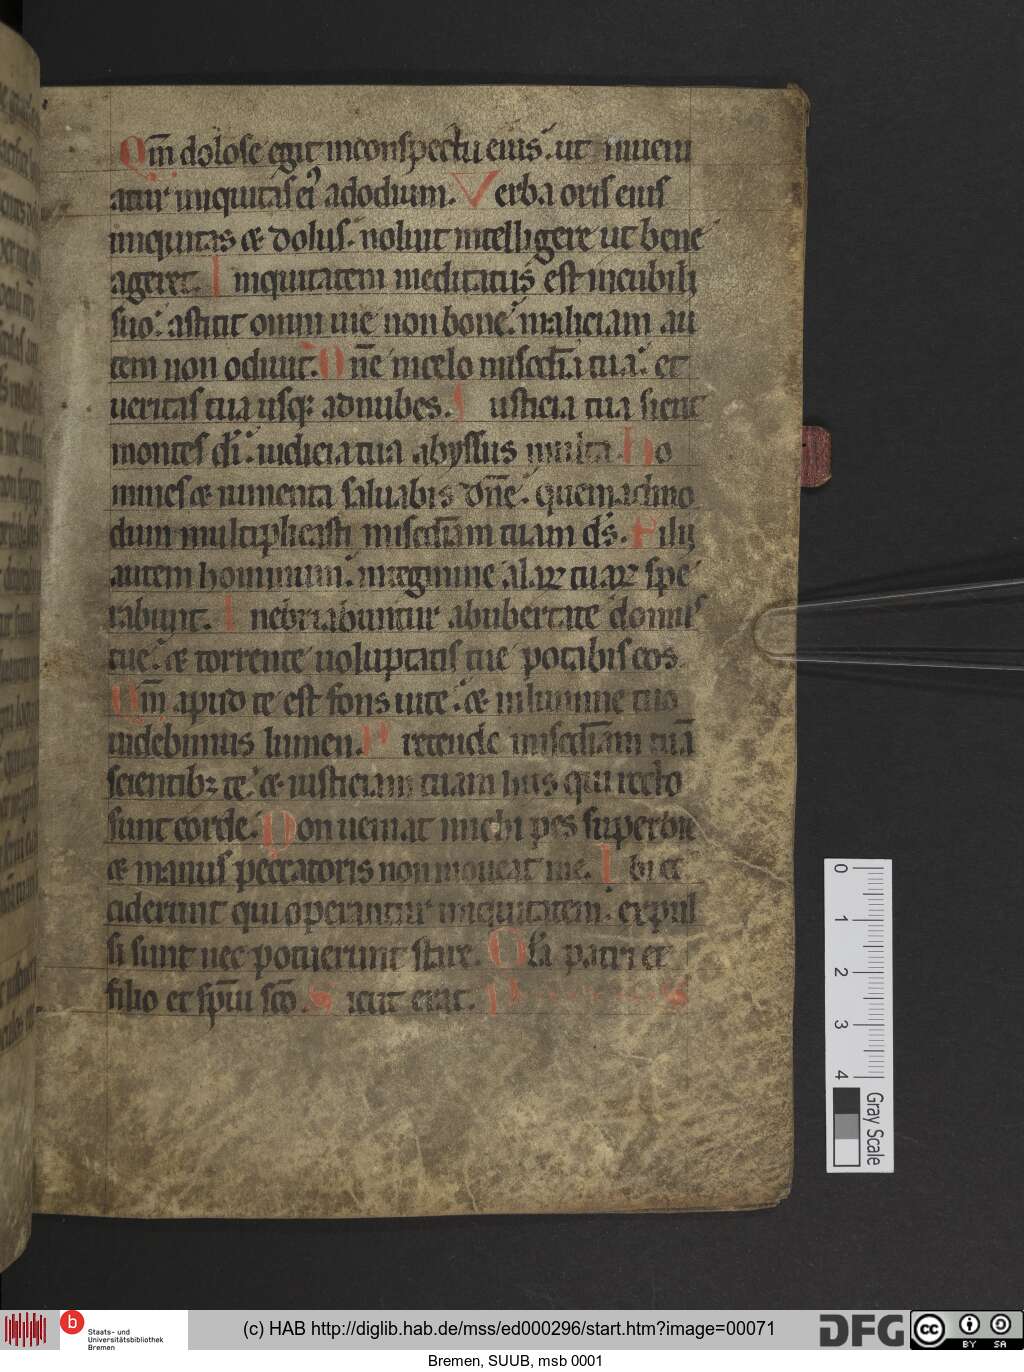 Qm̄ dolose egit inconspectu eius. ut inueni
atur iniquitas ei᾽ adodium. Verba oris eius
iniquitas & dolus. noluit intelligere ut bene
ageret. Iniquitatem meditatus est incubili
suo. astitit omni uie non bone. maliciam au
tem non odiuit. Dn̄e incelo misc̄dia tua. et
ueritas tua usq; adnubes. Iusticia tua sicut
montes dī. iudicia tua abyssus multa. Ho
mines & iumenta saluabis dn̄e. quemadmo
dum multiplicasti misc̄diam tuam ds̄. Filij
autem hominum. integmine alaꝝ tuaꝝ spe
rabunt. Inebriabuntur abubertate domus
tue. & torrente uoluptatis tue potabis eos.
Qm̄ apud te est fons uite. & inlumine tuo
uidebimus lumen. Pretende misc̄diam tuā
scientib; te. & iusticiam tuam hiis qui recto
sunt corde. Non ueniat michi pes superbie
& manus peccatoris non moueat me. Ibi ce
ciderunt qui operantur iniquitatem. expul
si sunt nec potuerunt stare. Glā patri et
filio et sp̄ui scō. Sicut erat.
0
1
2
3
4
Gray Scale
b
Staats- und
Universitätsbibliothek
Bremen
(c) HAB http://diglib.hab.de/mss/ed000296/start.htm?image=00071
DFG
cc
BY SA
Bremen, SUUB, msb 0001